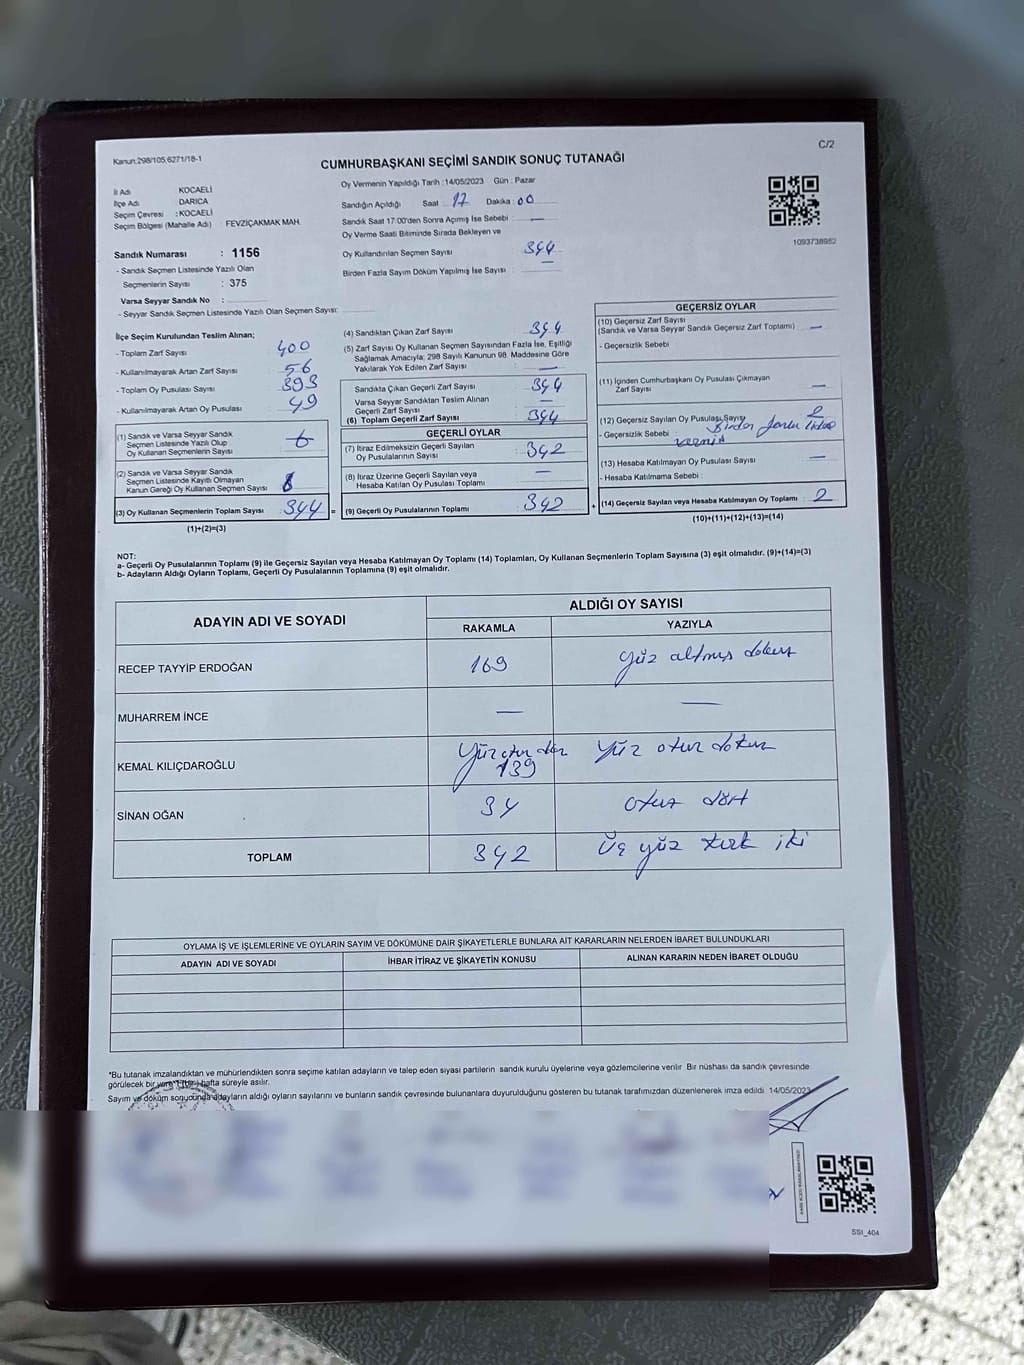 Kanun:298/105;6271/18-1
C/2
CUMHURBAŞKANI SEÇİMİ SANDIK SONUÇ TUTANAĞI
İl Adı KOCAELİ
İlçe Adı DARICA
Seçim Çevresi : KOCAELİ
Seçim Bölgesi (Mahalle Adı) FEVZİÇAKMAK MAH.
Sandık Numarası : 1156
- Sandık Seçmen Listesinde Yazılı Olan
Seçmenlerin Sayısı : 375
Varsa Seyyar Sandık No :
- Seyyar Sandık Seçmen Listesinde Yazılı Olan Seçmen Sayısı:
Oy Vermenin Yapıldığı Tarih :14/05/2023 Gün : Pazar
Sandığın Açıldığı Saat 17 Dakika : 00
Sandık Saat 17:00'den Sonra Açımış İse Sebebi : —
Oy Verme Saati Bitiminde Sırada Bekleyen ve
Oy Kullandırılan Seçmen Sayısı 344
Birden Fazla Sayım Döküm Yapılmış İse Sayısı —
1093738952
İlçe Seçim Kurulundan Teslim Alınan;
- Toplam Zarf Sayısı 400
- Kullanılmayarak Artan Zarf Sayısı 56
- Toplam Oy Pusulası Sayısı 393
- Kullanılmayarak Artan Oy Pusulası 49
(1) Sandık ve Varsa Seyyar Sandık
Seçmen Listesinde Yazılı Olup
Oy Kullanan Seçmenlerin Sayısı
(2) Sandık ve Varsa Seyyar Sandık
Seçmen Listesinde Kayıtlı Olmayan
Kanun Gereği Oy Kullanan Seçmen Sayısı
(3) Oy Kullanan Seçmenlerin Toplam Sayısı 344 =
(1)+(2)=(3)
(4) Sandıktan Çıkan Zarf Sayısı 344
(5) Zarf Sayısı Oy Kullanan Seçmen Sayısından Fazla İse, Eşitliği
Sağlamak Amacıyla; 298 Sayılı Kanunun 98. Maddesine Göre
Yakılarak Yok Edilen Zarf Sayısı : —
Sandıkta Çıkan Geçerli Zarf Sayısı 344
Varsa Seyyar Sandıktan Teslim Alınan
Geçerli Zarf Sayısı —
(6) Toplam Geçerli Zarf Sayısı 344
GEÇERLİ OYLAR
(7) İtiraz Edilmeksizin Geçerli Sayılan
Oy Pusulalarının Sayısı 342
(8) İtiraz Üzerine Geçerli Sayılan veya
Hesaba Katılan Oy Pusulası Toplamı —
(9) Geçerli Oy Pusulalarının Toplamı 342 +
GEÇERSİZ OYLAR
(10) Geçersiz Zarf Sayısı
(Sandık ve Varsa Seyyar Sandık Geçersiz Zarf Toplamı) —
- Geçersizlik Sebebi
(11) İçinden Cumhurbaşkanı Oy Pusulası Çıkmayan
Zarf Sayısı —
(12) Geçersiz Sayılan Oy Pusulası Sayısı 2
- Geçersizlik Sebebi : Birden fazla
(13) Hesaba Katılmayan Oy Pusulası Sayısı —
- Hesaba Katılmama Sebebi :
(14) Geçersiz Sayılan veya Hesaba Katılmayan Oy Toplamı : 2
(10)+(11)+(12)+(13)=(14)
NOT:
a- Geçerli Oy Pusulalarının Toplamı (9) ile Geçersiz Sayılan veya Hesaba Katılmayan Oy Toplamı (14) Toplamları, Oy Kullanan Seçmenlerin Toplam Sayısına (3) eşit olmalıdır. (9)+(14)=(3)
b- Adayların Aldığı Oyların Toplamı, Geçerli Oy Pusulalarının Toplamına (9) eşit olmalıdır.
ADAYIN ADI VE SOYADI ALDIĞI OY SAYISI
RAKAMLA YAZIYLA
RECEP TAYYİP ERDOĞAN 169 Yüz altmış dokuz
MUHARREM İNCE — —
KEMAL KILIÇDAROĞLU 139 Yüz otuz dokuz
SİNAN OĞAN 34 otuz dört
TOPLAM 342 Üç yüz kırk iki
OYLAMA İŞ VE İŞLEMLERİNE VE OYLARIN SAYIM VE DÖKÜMÜNE DAİR ŞİKAYETLERLE BUNLARA AİT KARARLARIN NELERDEN İBARET BULUNDUKLARI
ADAYIN ADI VE SOYADI İHBAR İTİRAZ VE ŞİKAYETİN KONUSU ALINAN KARARIN NEDEN İBARET OLDUĞU
*Bu tutanak imzalandıktan ve mühürlendikten sonra seçime katılan adayların ve talep eden siyasi partilerin sandık kurulu üyelerine veya gözlemcilerine verilir Bir nüshası da sandık çevresinde
görülecek bir yere 1 (bir) hafta süreyle asılır.
Sayım ve döküm sonucunda adayların aldığı oyların sayılarını ve bunların sandık çevresinde bulunanlara duyurulduğunu gösteren bu tutanak tarafımızdan düzenlenerek imza edildi 14/05/2023
SSI_404